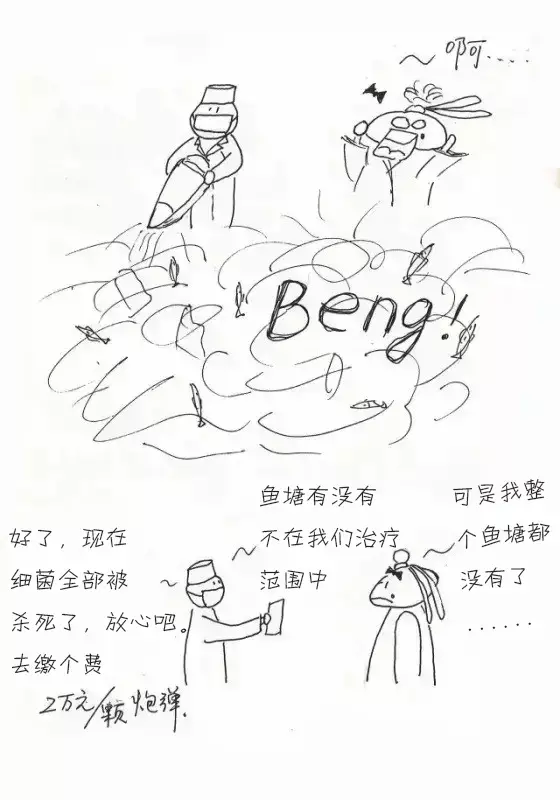 啊....
Beng!
好了，现在
细菌全部被
杀死了，放心吧。
去缴个费
2万元/颗炮弹.
鱼塘有没有
不在我们治疗
范围中
可是我整
个鱼塘都
没有了
......